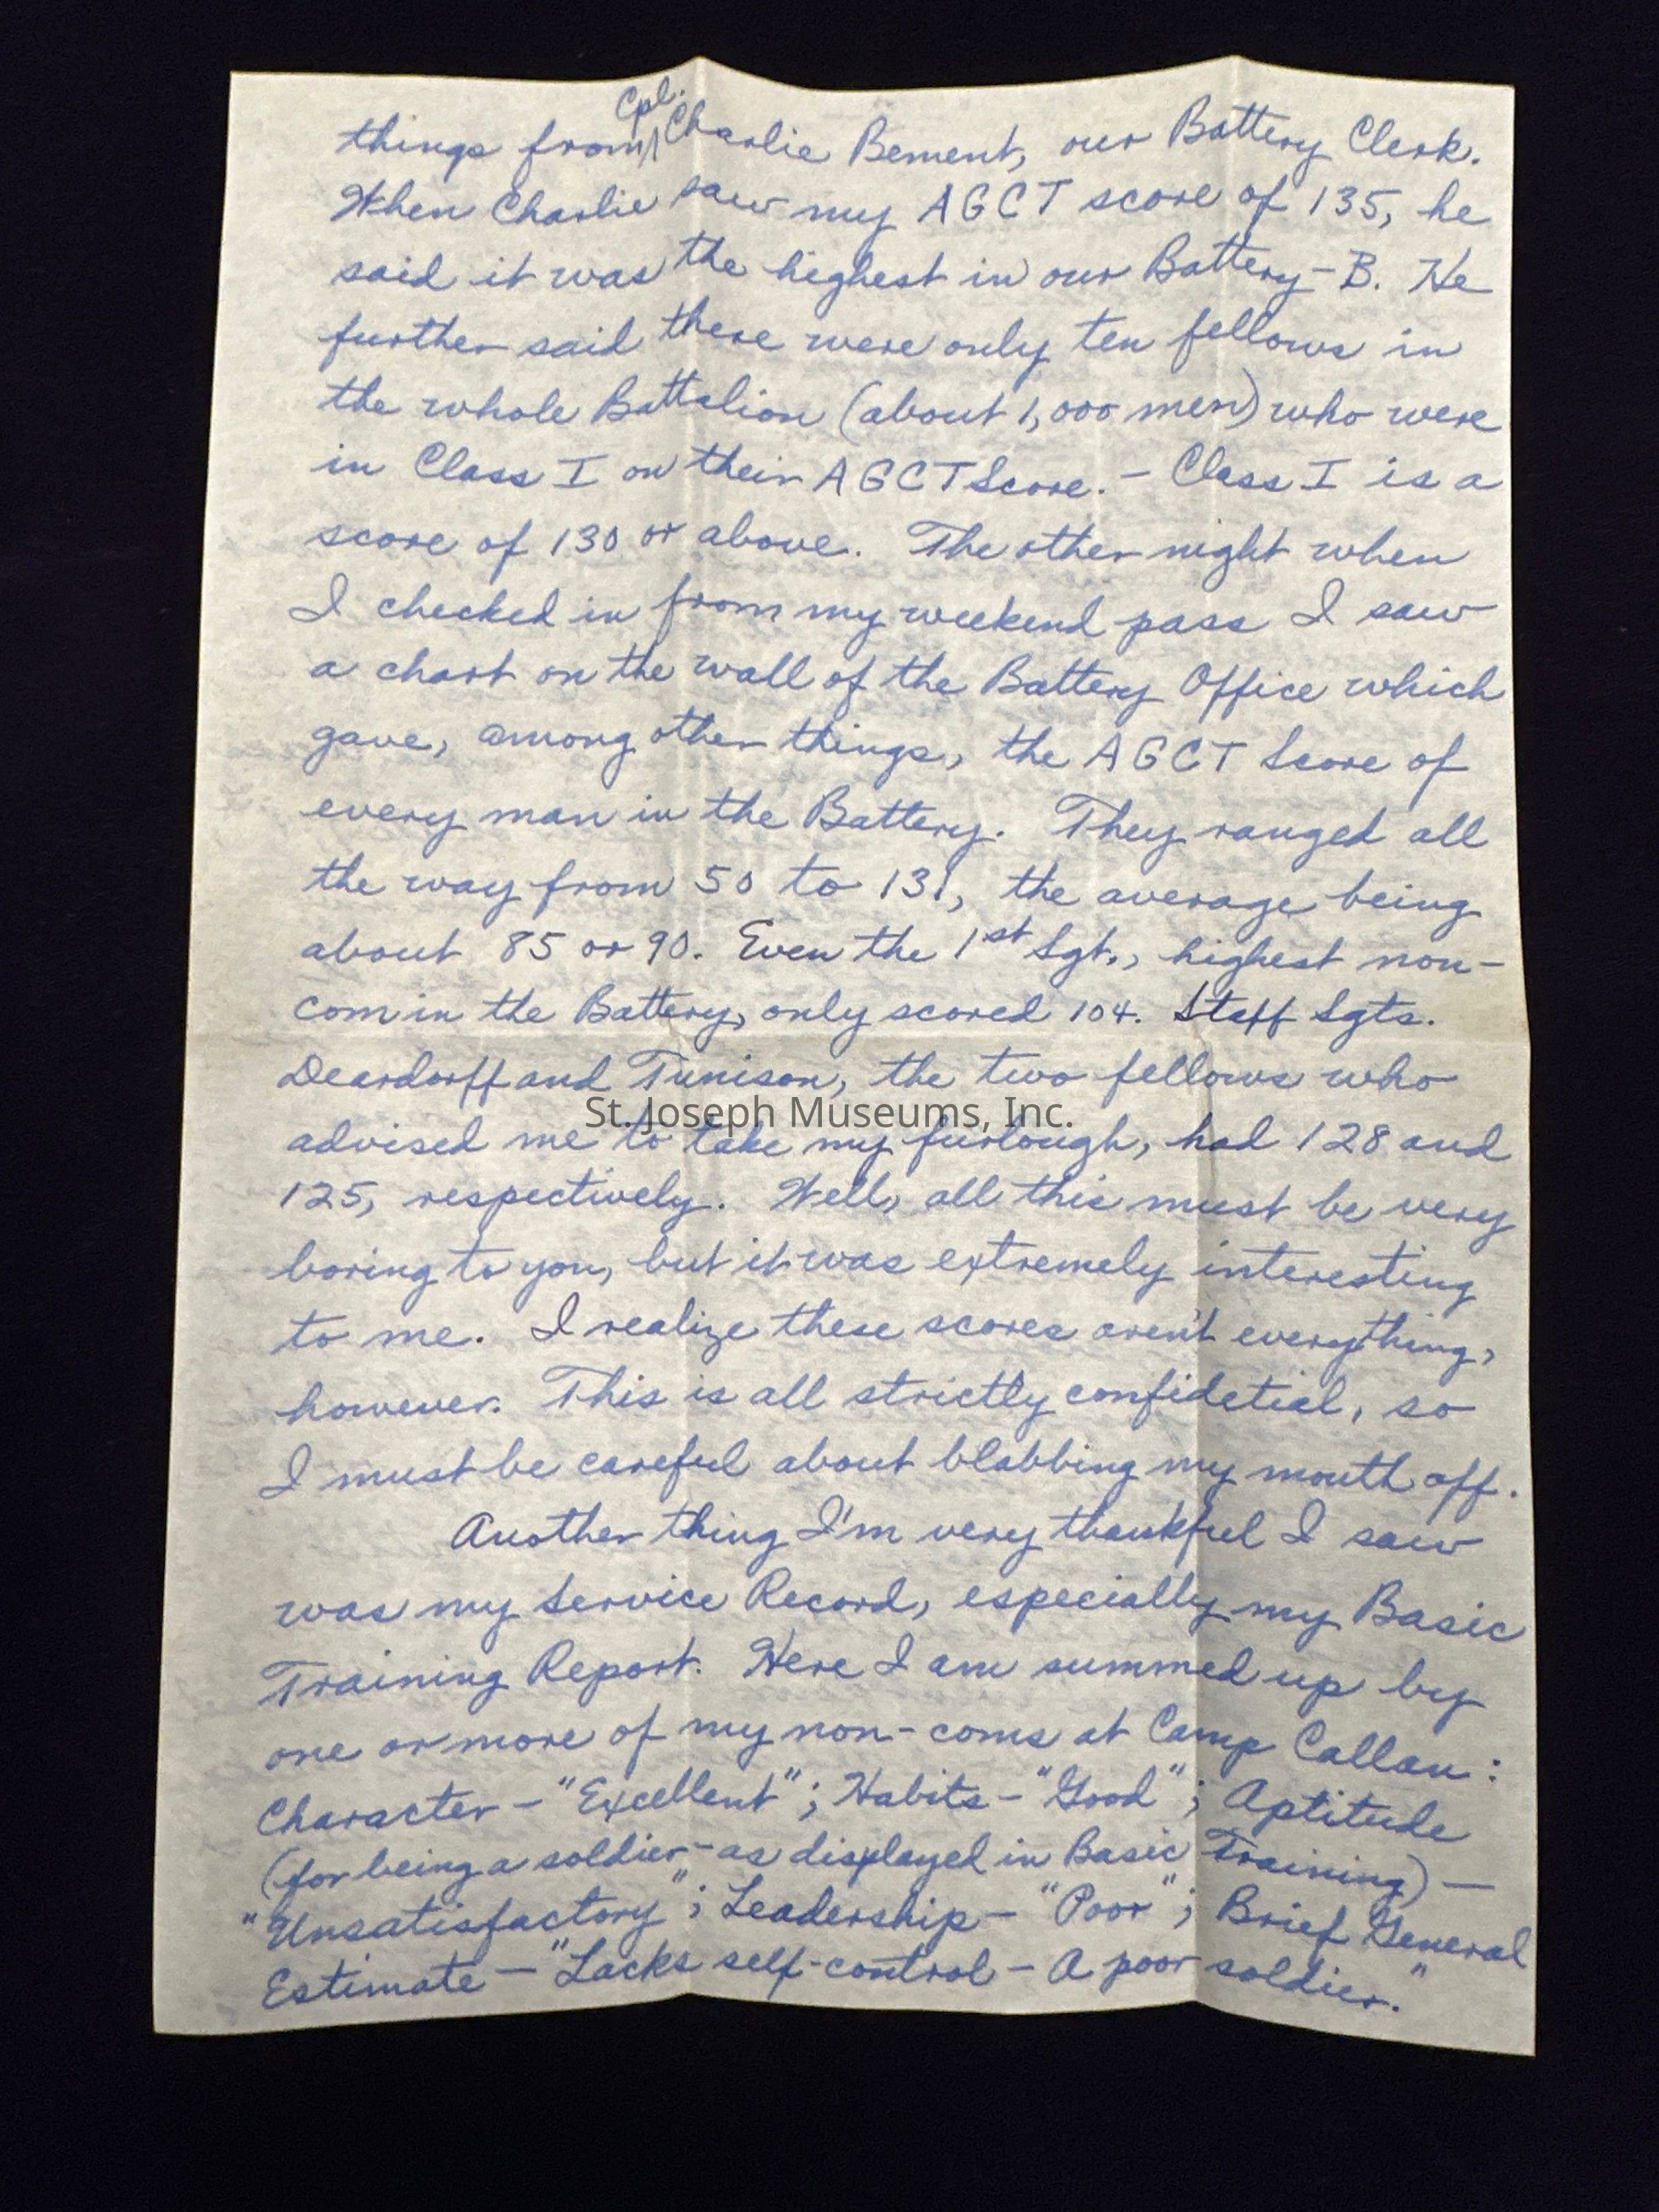 things from Cpl. Charlie Bement, our Battery Clerk.
When Charlie saw my AGCT score of 135, he
said it was the highest in our Battery - B. He
further said there were only ten fellows in
the whole Battalion (about 1,000 men) who were
in Class I on their AGCT Score. - Class I is a
score of 130 or above. The other night when
I checked in from my weekend pass I saw
a chart on the wall of the Battery Office which
gave, among other things, the AGCT Score of
every man in the Battery. They ranged all
the way from 50 to 131, the average being
about 85 or 90. Even the 1st Sgt., highest non-
com in the Battery, only scored 104. Staff Sgts.
Deardorff and Tunison, the two fellows who
St. Joseph Museums, Inc.
advised me to take my furlough, had 128 and
125, respectively. Well, all this must be very
boring to you, but it was extremely interesting
to me. I realize these scores aren't everything,
however. This is all strictly confidetial, so
I must be careful about blabbing my mouth off.
Another thing I'm very thankful I saw
was my Service Record, especially my Basic
Training Report. Here I am summed up by
one or more of my non-coms at Camp Callan:
Character - "Excellent"; Habits - "Good"; Aptitude
(for being a soldier - as displayed in Basic Training) -
"Unsatisfactory"; Leadership - "Poor"; Brief General
Estimate - "Lacks self-control - A poor soldier."